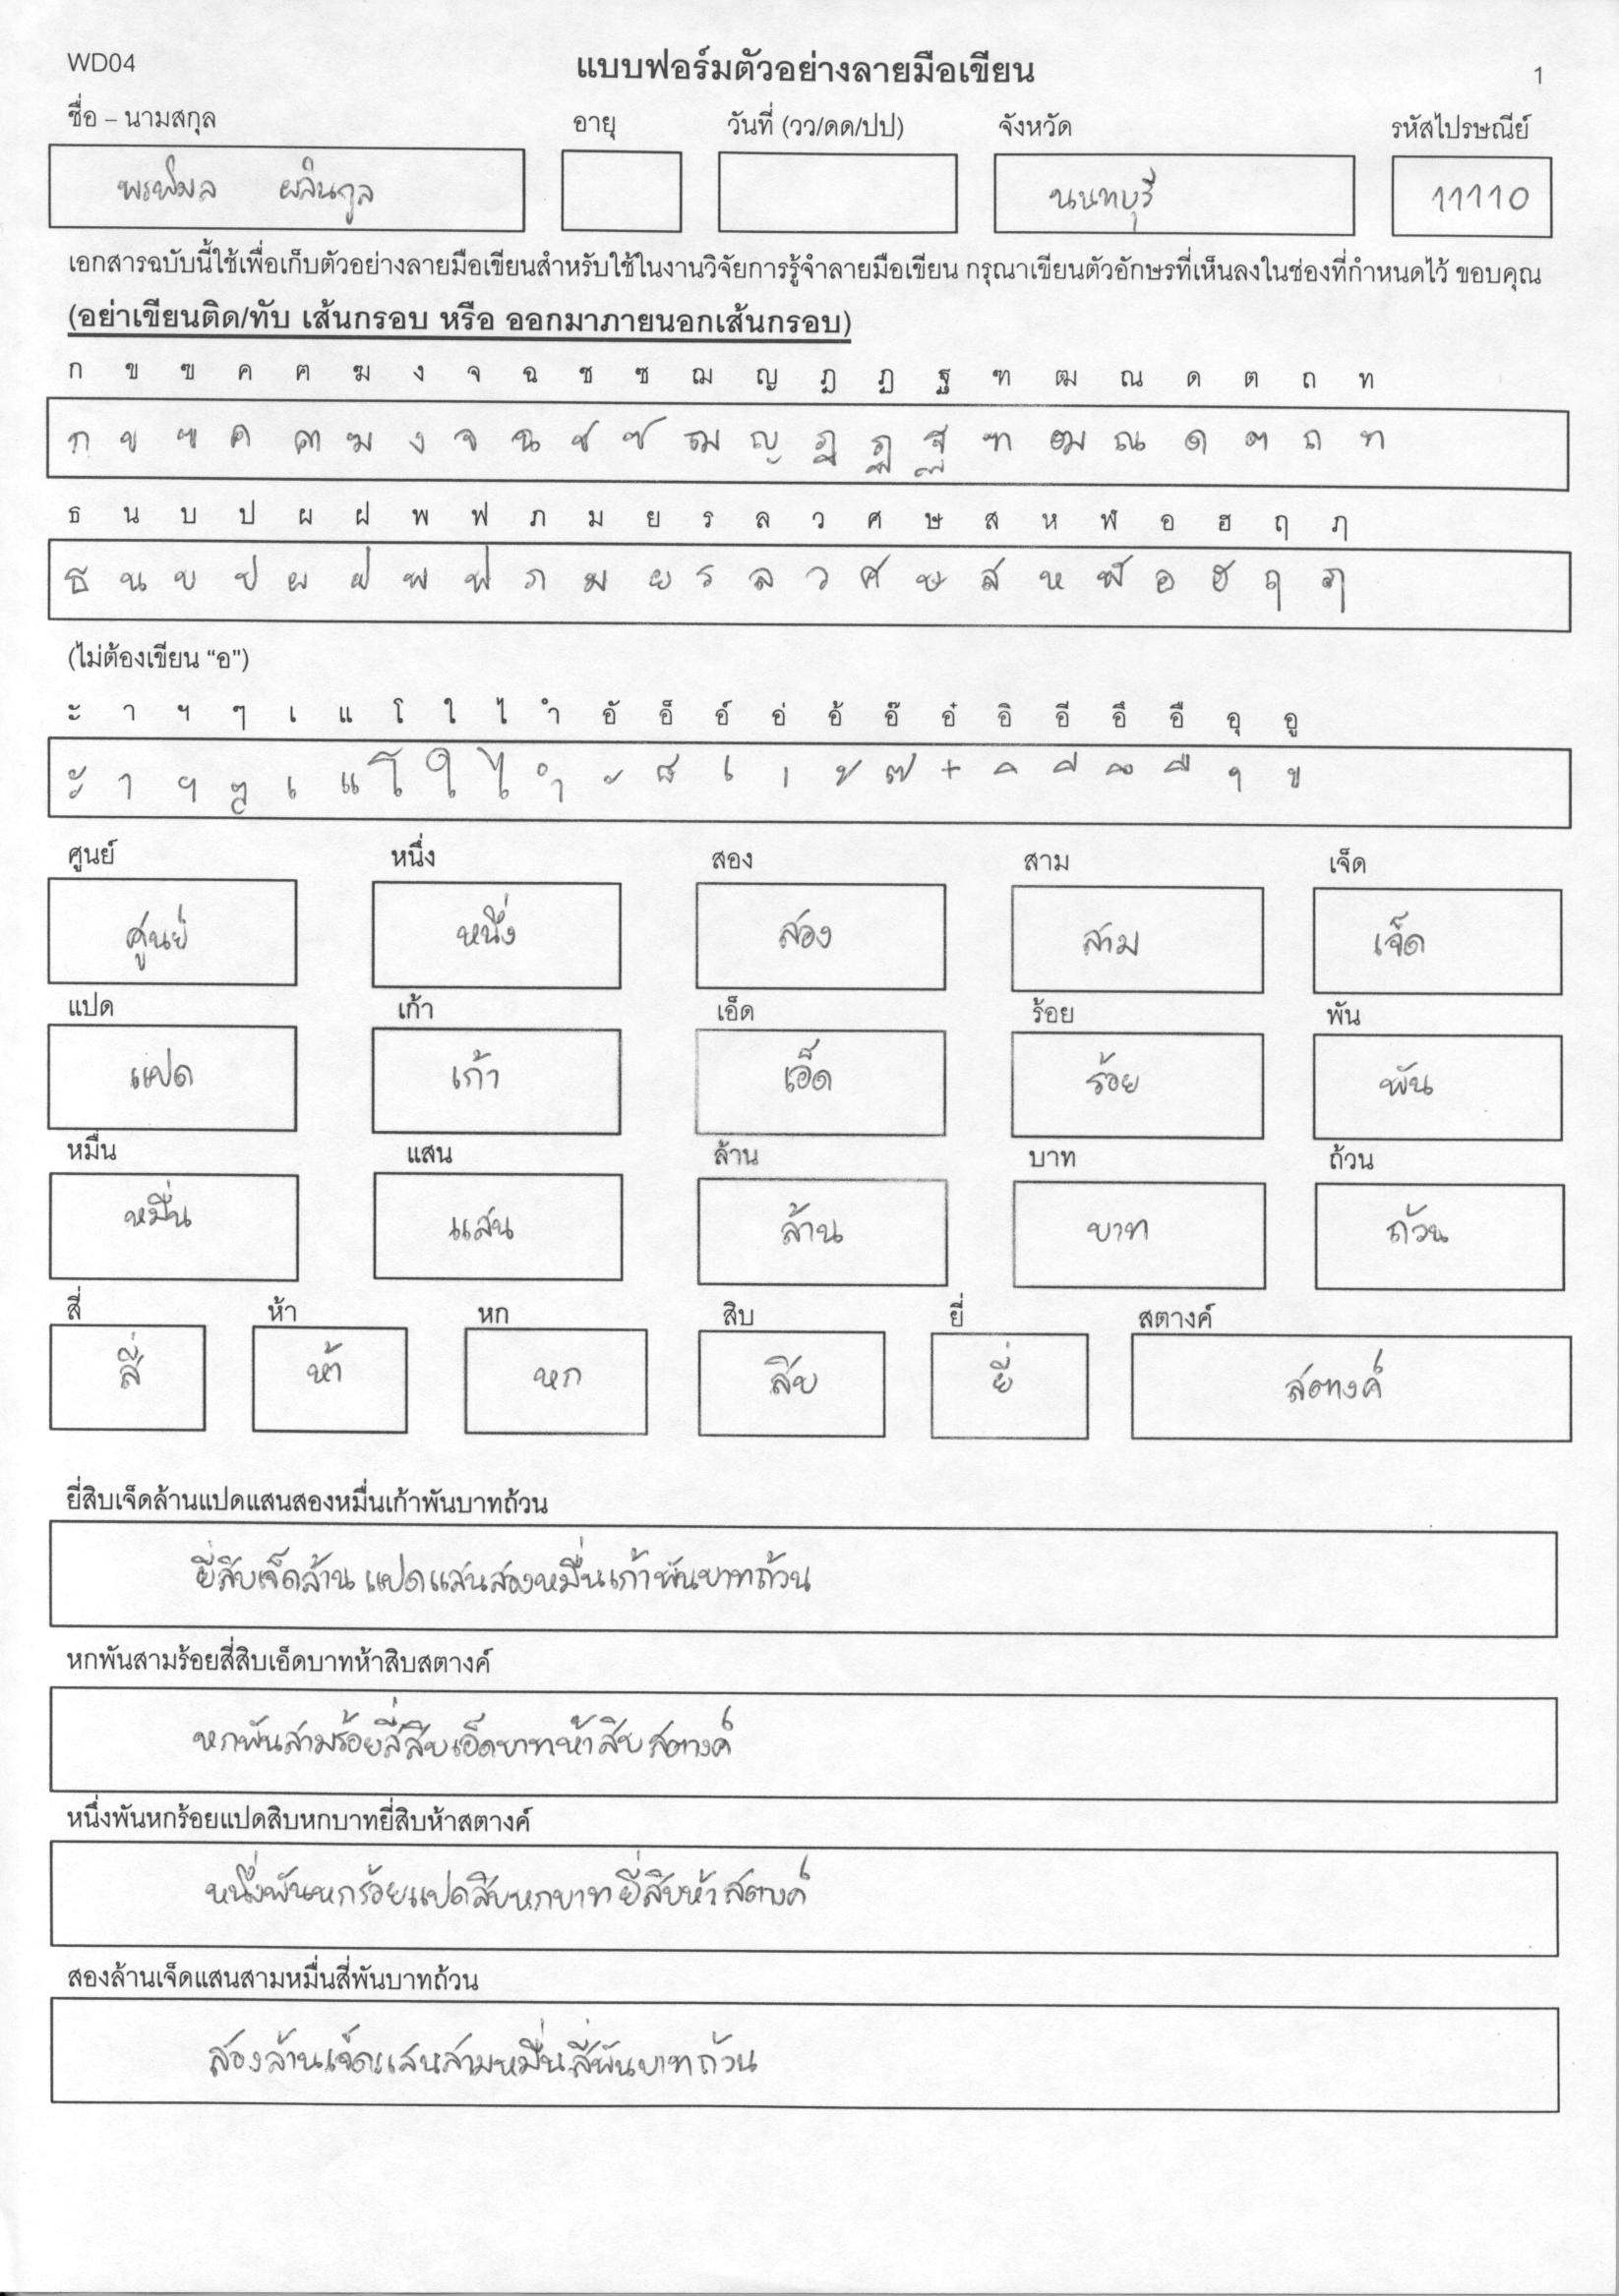 WD04
แบบฟอร์มตัวอย่างลายมือเขียน
1
ชื่อ – นามสกุล อายุ วันที่ (วว/ดด/ปป) จังหวัด รหัสไปรษณีย์
พรพิมล ผลินกูล นนทบุรี 11110
เอกสารฉบับนี้ใช้เพื่อเก็บตัวอย่างลายมือเขียนสำหรับใช้ในงานวิจัยการรู้จำลายมือเขียน กรุณาเขียนตัวอักษรที่เห็นลงในช่องที่กำหนดไว้ ขอบคุณ
(อย่าเขียนติด/ทับ เส้นกรอบ หรือ ออกมาภายนอกเส้นกรอบ)
ก ข ฃ ค ฅ ฆ ง จ ฉ ช ซ ฌ ญ ฎ ฏ ฐ ฑ ฒ ณ ด ต ถ ท
ก ข ฃ ค ฅ ฆ ง จ ฉ ช ซ ฌ ญ ฎ ฏ ฐ ฑ ฒ ณ ด ต ถ ท
ธ น บ ป ผ ฝ พ ฟ ภ ม ย ร ล ว ศ ษ ส ห ฬ อ ฮ ฤ ฦ
ธ น บ ป ผ ฝ พ ฟ ภ ม ย ร ล ว ศ ษ ส ห ฬ อ ฮ ฤ ฦ
(ไม่ต้องเขียน “อ”)
ะ า ฯ ๆ เ แ โ ใ ไ ำ อั อ็ อ์ อ่ อ้ อ๊ อ๋ อิ อี อึ อื อุ อู
ะ า ฯ ๆ เ แ โ ใ ไ ำ ั ็ ์ ่ ้ ๊ ๋ ิ ี ึ ื ุ ู
ศูนย์ หนึ่ง สอง สาม เจ็ด
ศูนย์ หนึ่ง สอง สาม เจ็ด
แปด เก้า เอ็ด ร้อย พัน
แปด เก้า เอ็ด ร้อย พัน
หมื่น แสน ล้าน บาท ถ้วน
หมื่น แสน ล้าน บาท ถ้วน
สี่ ห้า หก สิบ ยี่ สตางค์
สี่ ห้า หก สิบ ยี่ สตางค์
ยี่สิบเจ็ดล้านแปดแสนสองหมื่นเก้าพันบาทถ้วน
ยี่สิบเจ็ดล้าน แปดแสนสองหมื่นเก้าพันบาทถ้วน
หกพันสามร้อยสี่สิบเอ็ดบาทห้าสิบสตางค์
หกพันสามร้อยสี่สิบเอ็ดบาทห้าสิบสตางค์
หนึ่งพันหกร้อยแปดสิบหกบาทยี่สิบห้าสตางค์
หนึ่งพันหกร้อยแปดสิบหกบาทยี่สิบห้าสตางค์
สองล้านเจ็ดแสนสามหมื่นสี่พันบาทถ้วน
สองล้านเจ็ดแสนสามหมื่นสี่พันบาทถ้วน